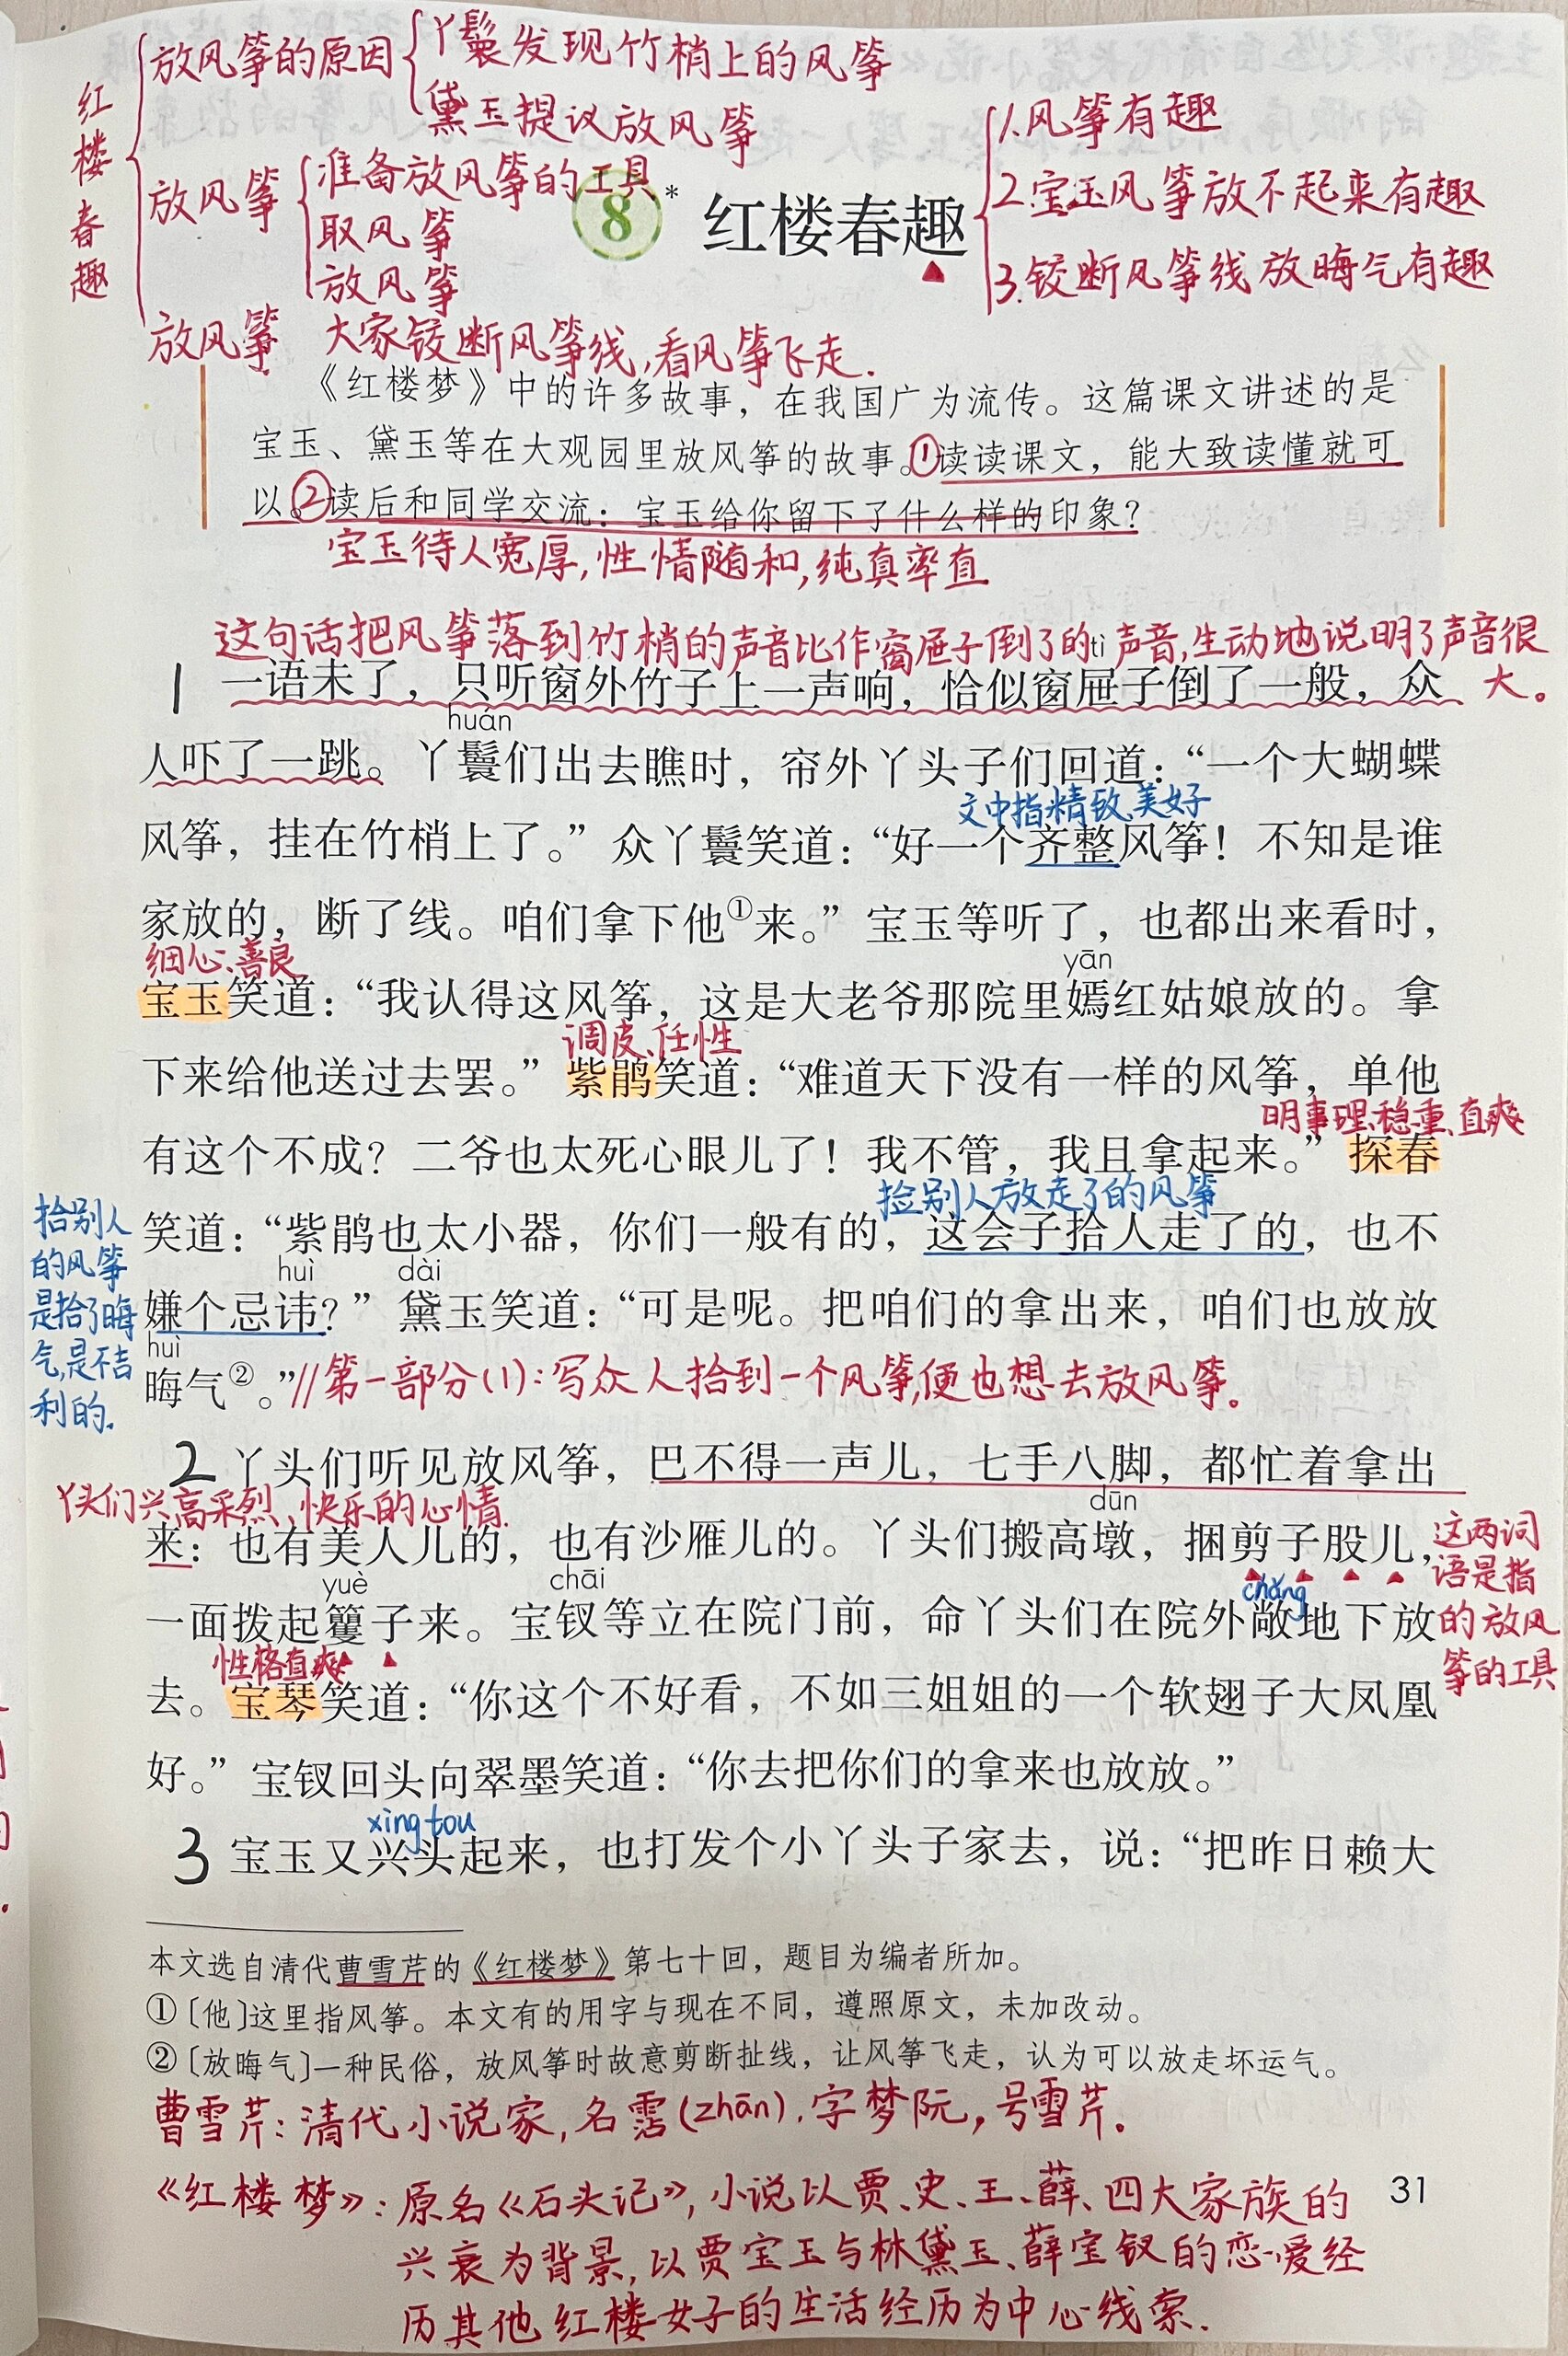 红楼春趣
放风筝的原因
丫鬟发现竹梢上的风筝
黛玉提议放风筝
放风筝
准备放风筝的工具
取风筝
放风筝
放风筝 大家铰断风筝线,看风筝飞走.
8* 红楼春趣
1.风筝有趣
2.宝玉风筝放不起来有趣
3.铰断风筝线放晦气有趣
《红楼梦》中的许多故事，在我国广为流传。这篇课文讲述的是
宝玉、黛玉等在大观园里放风筝的故事。①读读课文，能大致读懂就可
以。②读后和同学交流：宝玉给你留下了什么样的印象？
宝玉待人宽厚,性情随和,纯真率直
这句话把风筝落到竹梢的声音比作窗屉子倒了的声音,生动地说明了声音很
大。
tì
1 一语未了，只听窗外竹子上一声响，恰似窗屉子倒了一般，众
huán
人吓了一跳。丫鬟们出去瞧时，帘外丫头子们回道：“一个大蝴蝶
文中指精致、美好
风筝，挂在竹梢上了。”众丫鬟笑道：“好一个齐整风筝！不知是谁
家放的，断了线。咱们拿下他①来。”宝玉等听了，也都出来看时，
细心、善良
yān
宝玉笑道：“我认得这风筝，这是大老爷那院里嫣红姑娘放的。拿
调皮、任性
下来给他送过去罢。”紫鹃笑道：“难道天下没有一样的风筝，单他
明事理、稳重、直爽
有这个不成？二爷也太死心眼儿了！我不管，我且拿起来。”探春
捡别人放走了的风筝
笑道：“紫鹃也太小器，你们一般有的，这会子拾人走了的，也不
huì dài
嫌个忌讳？”黛玉笑道：“可是呢。把咱们的拿出来，咱们也放放
huì
晦气②。”//第一部分(1):写众人拾到一个风筝,便也想去放风筝。
拾别人
的风筝
是拾了晦
气,是不吉
利的.
2 丫头们听见放风筝，巴不得一声儿，七手八脚，都忙着拿出
丫头们兴高采烈、快乐的心情.
dūn
来：也有美人儿的，也有沙雁儿的。丫头们搬高墩，捆剪子股儿，
yuè chāi chǎng
一面拨起籰子来。宝钗等立在院门前，命丫头们在院外敞地下放
这两词
语是指
的放风
筝的工具
性格直爽
去。宝琴笑道：“你这个不好看，不如三姐姐的一个软翅子大凤凰
好。”宝钗回头向翠墨笑道：“你去把你们的拿来也放放。”
xìng tou
3 宝玉又兴头起来，也打发个小丫头子家去，说：“把昨日赖大
本文选自清代曹雪芹的《红楼梦》第七十回，题目为编者所加。
①〔他〕这里指风筝。本文有的用字与现在不同，遵照原文，未加改动。
②〔放晦气〕一种民俗，放风筝时故意剪断扯线，让风筝飞走，认为可以放走坏运气。
曹雪芹:清代小说家,名霑(zhān).字梦阮,号雪芹。
《红楼梦》:原名《石头记》,小说以贾、史、王、薛、四大家族的
兴衰为背景,以贾宝玉与林黛玉、薛宝钗的恋爱经
历其他红楼女子的生活经历为中心线索.
31